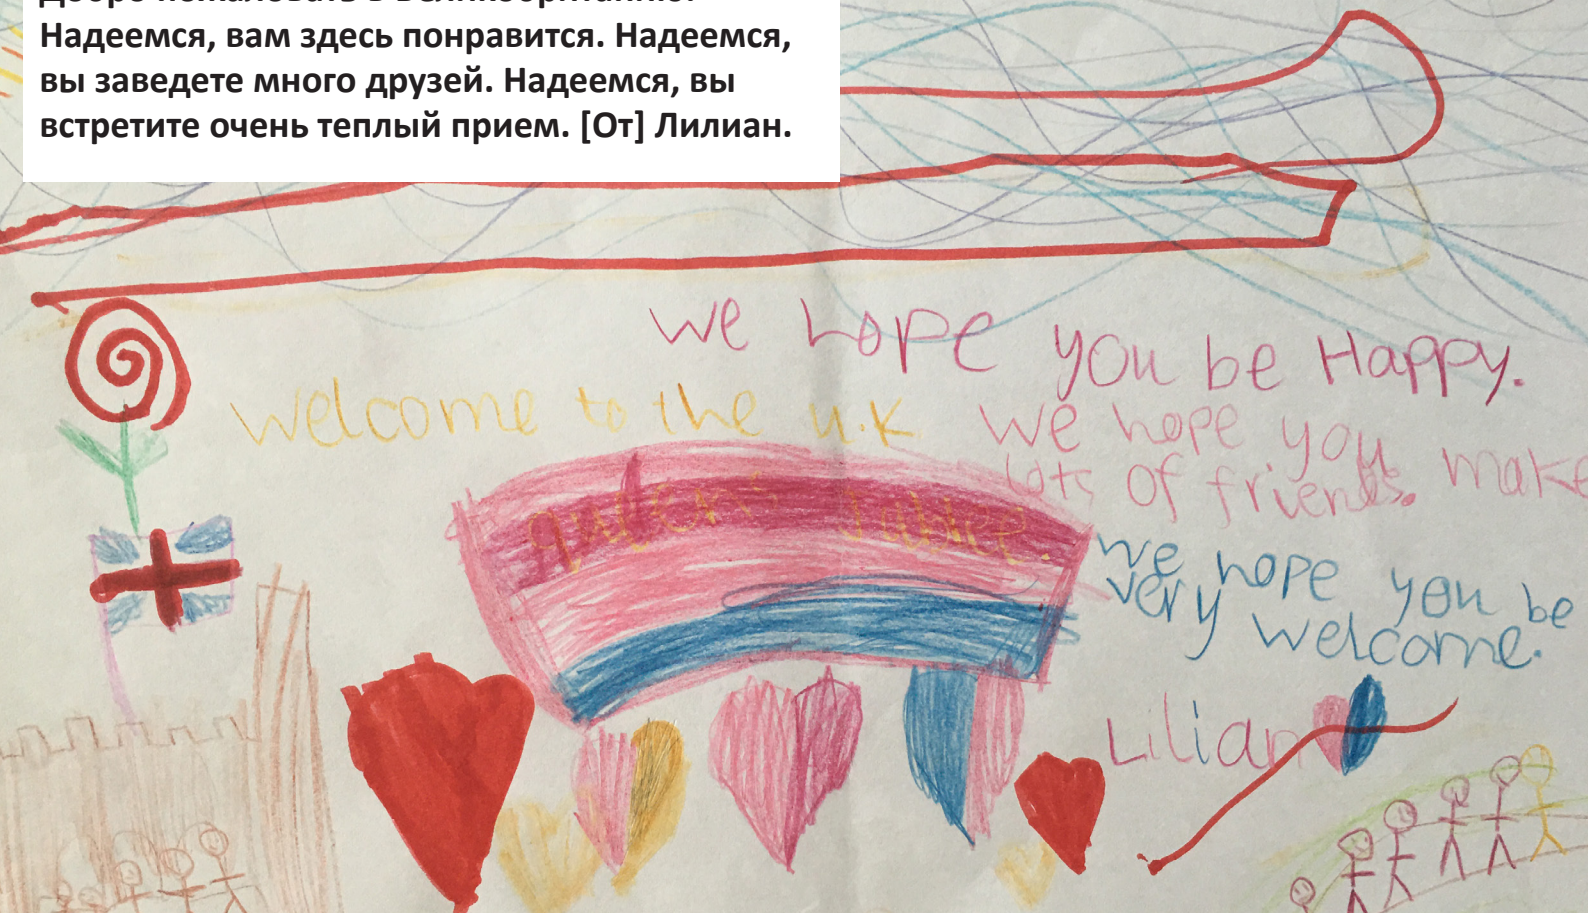 Добро пожаловать в Великобританию!
Надеемся, вам здесь понравится. Надеемся,
вы заведете много друзей. Надеемся, вы
встретите очень теплый прием. [От] Лилиан.
we hope you be Happy.
welcome to the u.k
we hope you make
lots of friends.
queens Jubilee.
we hope you be
very welcome.
Lilian